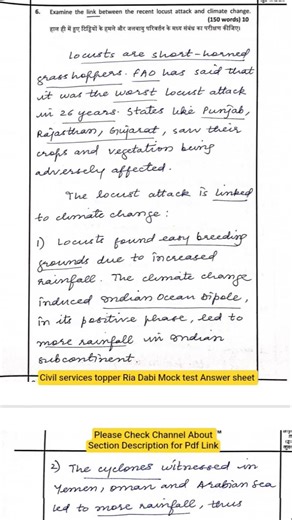 6. Examine the link between the recent locust attack and climate change.
(150 words) 10
हाल ही में हुए टिड्डियों के हमले और जलवायु परिवर्तन के मध्य संबंध का परीक्षण कीजिए।
Locusts are short-horned
grasshoppers. FAO has said that
it was the worst locust attack
in 26 years. States like Punjab,
Rajasthan, Gujarat, saw their
crops and vegetation being
adversely affected.
The locust attack is linked
to climate change :
1) Locusts found easy breeding
grounds due to increased
rainfall. The climate change
induced Indian Ocean Dipole,
in its positive phase, led to
more rainfall in Indian
subcontinent.
Civil services topper Ria Dabi Mock test Answer sheet
Please Check Channel About
Section Description for Pdf Link
2) The cyclones witnessed in
Yemen, Oman and Arabian Sea
led to more rainfall, thus